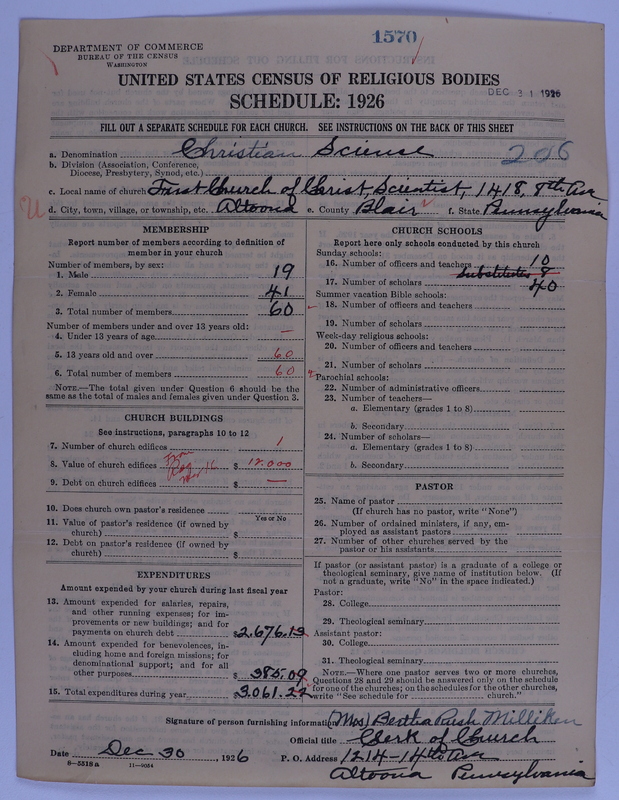 1570
DEPARTMENT OF COMMERCE
BUREAU OF THE CENSUS
WASHINGTON
UNITED STATES CENSUS OF RELIGIOUS BODIES
DEC 31 1926
SCHEDULE: 1926
FILL OUT A SEPARATE SCHEDULE FOR EACH CHURCH. SEE INSTRUCTIONS ON THE BACK OF THIS SHEET
a. Denomination Christian Science 206
b. Division (Association, Conference,
Diocese, Presbytery, Synod, etc.)
c. Local name of church First Church of Christ Scientist, 1418, 8th Ave
d. City, town, village, or township, etc. Altoona e. County Blair f. State Pennsylvania
MEMBERSHIP
Report number of members according to definition of
member in your church
Number of members, by sex:
1. Male 19
2. Female 41
3. Total number of members. 60
Number of members under and over 13 years old:
4. Under 13 years of age —
5. 13 years old and over 60
6. Total number of members 60
NOTE.—The total given under Question 6 should be the
same as the total of males and females given under Question 3.
CHURCH BUILDINGS
See instructions, paragraphs 10 to 12
7. Number of church edifices 1
8. Value of church edifices $ 12,000
9. Debt on church edifices $ —
10. Does church own pastor's residence
Yes or No
11. Value of pastor's residence (if owned by
church) $
12. Debt on pastor's residence (if owned by
church) $
EXPENDITURES
Amount expended by your church during last fiscal year
13. Amount expended for salaries, repairs,
and other running expenses; for im-
provements or new buildings; and for
payments on church debt $2,676.13
14. Amount expended for benevolences, in-
cluding home and foreign missions; for
denominational support; and for all
other purposes $ 385.09
15. Total expenditures during year $3,061.22
CHURCH SCHOOLS
Report here only schools conducted by this church
Sunday schools:
16. Number of officers and teachers 10
Substitutes 8
17. Number of scholars 40
Summer vacation Bible schools:
18. Number of officers and teachers
19. Number of scholars
Week-day religious schools:
20. Number of officers and teachers
21. Number of scholars
Parochial schools:
22. Number of administrative officers
23. Number of teachers—
a. Elementary (grades 1 to 8)
b. Secondary
24. Number of scholars—
a. Elementary (grades 1 to 8)
b. Secondary
PASTOR
25. Name of pastor
(If church has no pastor, write "None")
26. Number of ordained ministers, if any, em-
ployed as assistant pastors
27. Number of other churches served by the
pastor or his assistants
If pastor (or assistant pastor) is a graduate of a college or
theological seminary, give name of institution below. (If
not a graduate, write "No" in the space indicated.)
Pastor:
28. College
29. Theological seminary
Assistant pastor:
30. College
31. Theological seminary
NOTE.—Where one pastor serves two or more churches,
Questions 28 and 29 should be answered only on the schedule
for one of the churches; on the schedules for the other churches,
write "See schedule for church."
Signature of person furnishing information (Mrs) Bertha Rush Milliken
Official title Clerk of Church
Date Dec 30, 1926 P. O. Address 1214-14th Ave
8-5518a 11-9054 Altoona Pennsylvania